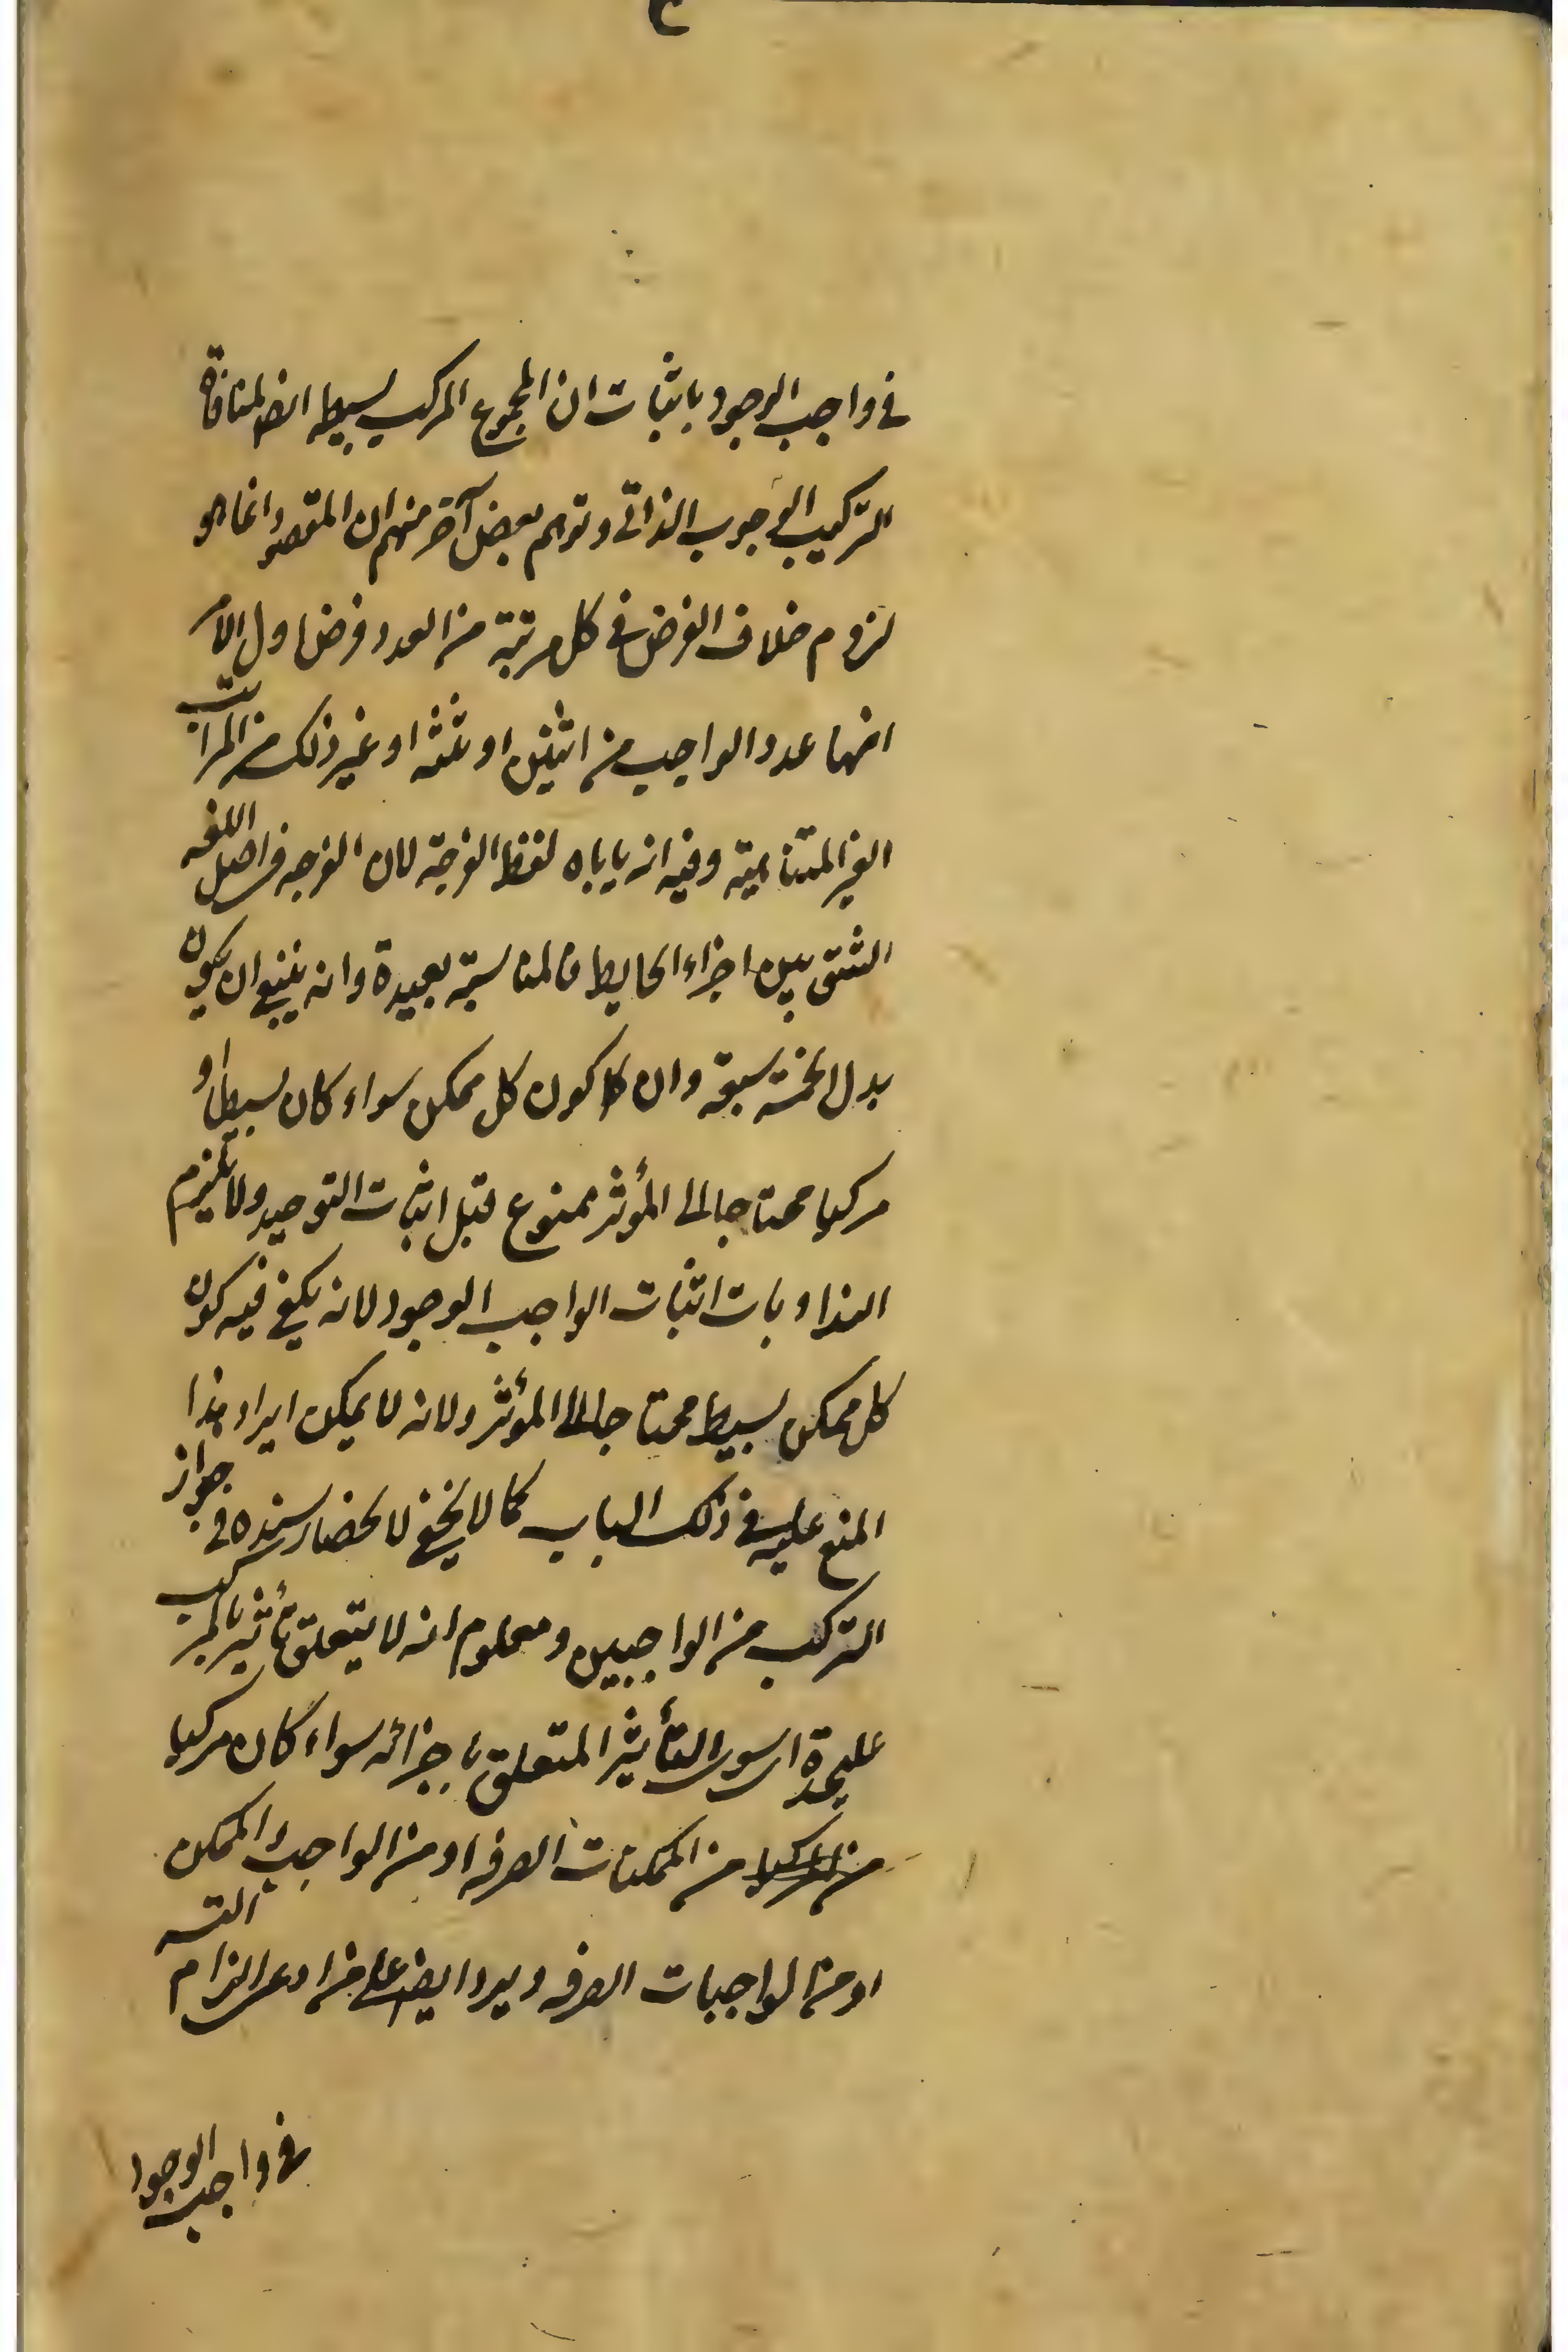 في واجب الوجود باثبات ان المجموع المركب بسيط ايضا لمنافاة
التركيب الوجوب الذاتي وتوهم بعض آخر منهم ان المقصود انما هو
لزوم خلاف الفرض في كل مرتبة من العدد فرض اول الامر
انها عدد الواجب من اثنين او ثلثه او غير ذلك من المراتب
الغير المتناهية وفيه انه ياباه لفظ الفرجة لان الفرجه في اصل اللغه
الشق بين اجزاء الحايط فالمناسبة بعيدة وانه ينبغي ان يكون
بدل الخمسة سبعة وان كون كل ممكن سواء كان بسيطا او
مركبا محتاجا الى المؤثر ممنوع قبل اثبات التوحيد ولا يلزم
اثبات الواجب الوجود لانه يكفي فيه كون
كل ممكن بسيط محتاجا الى المؤثر ولانه لا يمكن ايراد هذا
المنع عليه في ذلك الباب كما لا يخفى لانحصار سنده في جواز
التركب من الواجبين ومعلوم انه لا يتعلق تأثير بالمركب
عليحدة سوى التأثير المتعلق باجزائه سواء كان مركبا
من الممكنات الصرفه او من الواجب والممكن
او من الواجبات الصرفه ويرد ايضا على من ادعى التزام
في واجب الوجود